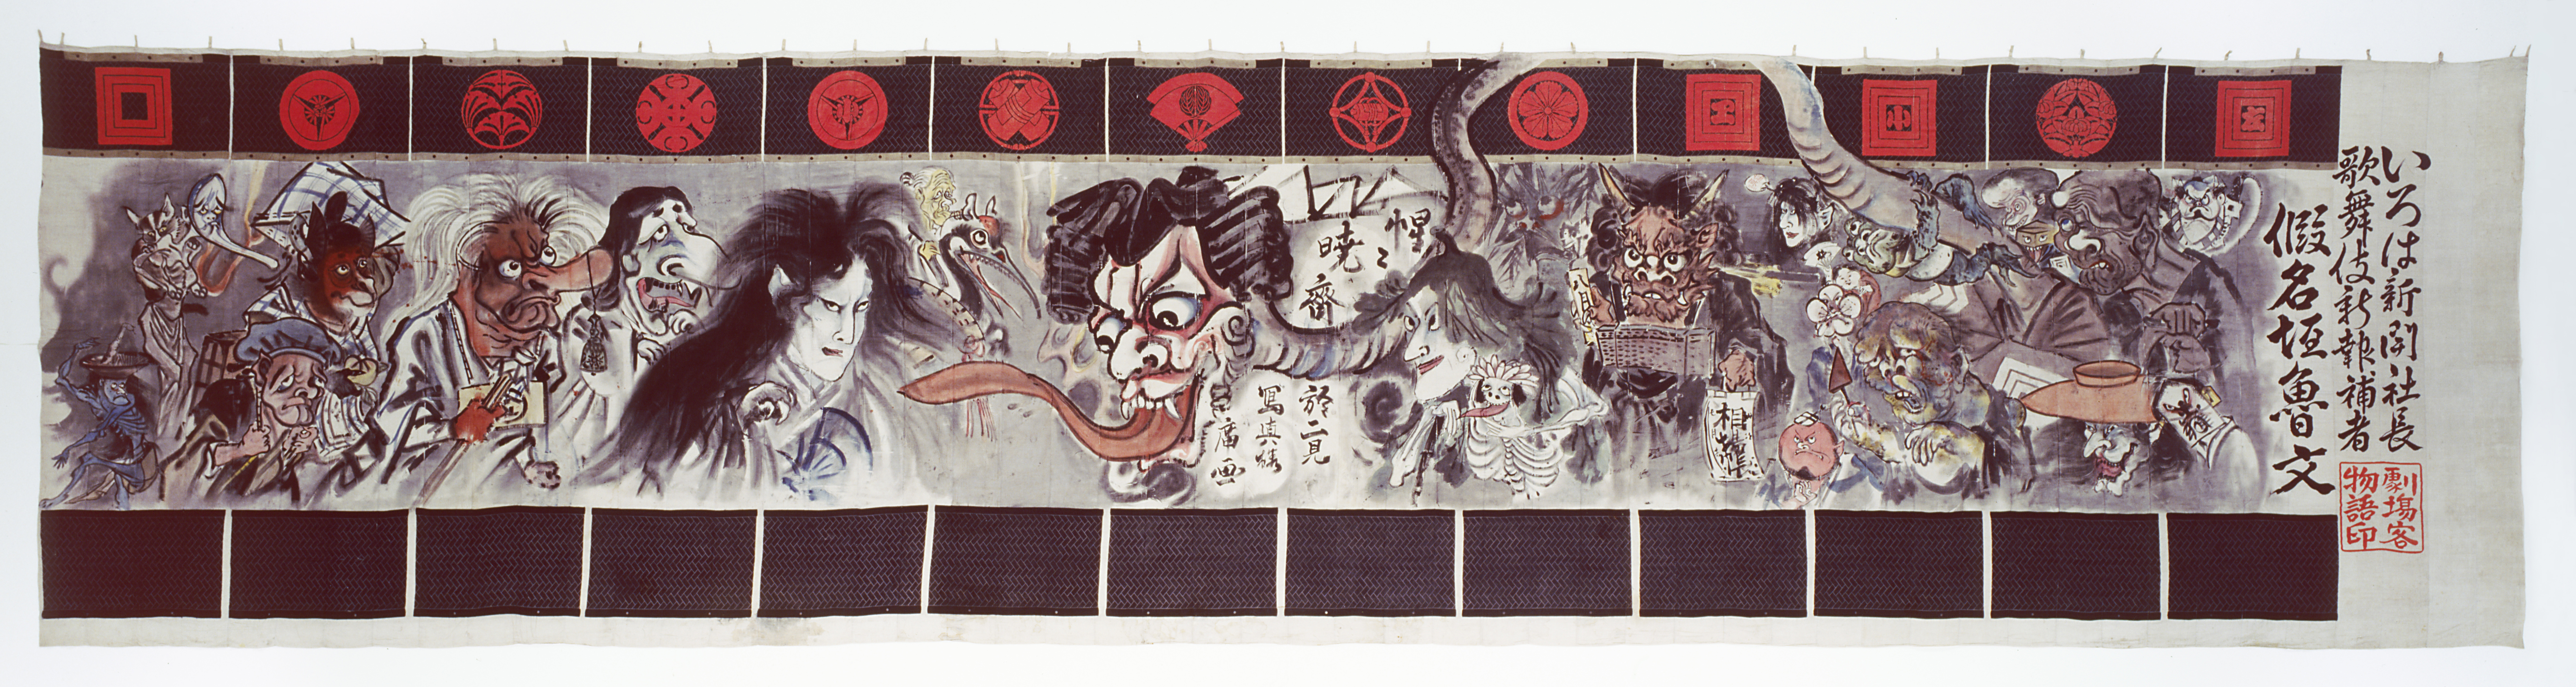 いろは新聞社長
歌舞伎新報補者
假名垣魯文
劇場客
物語印
相撲
惺々
暁齋
於二見
寫真楼
席画